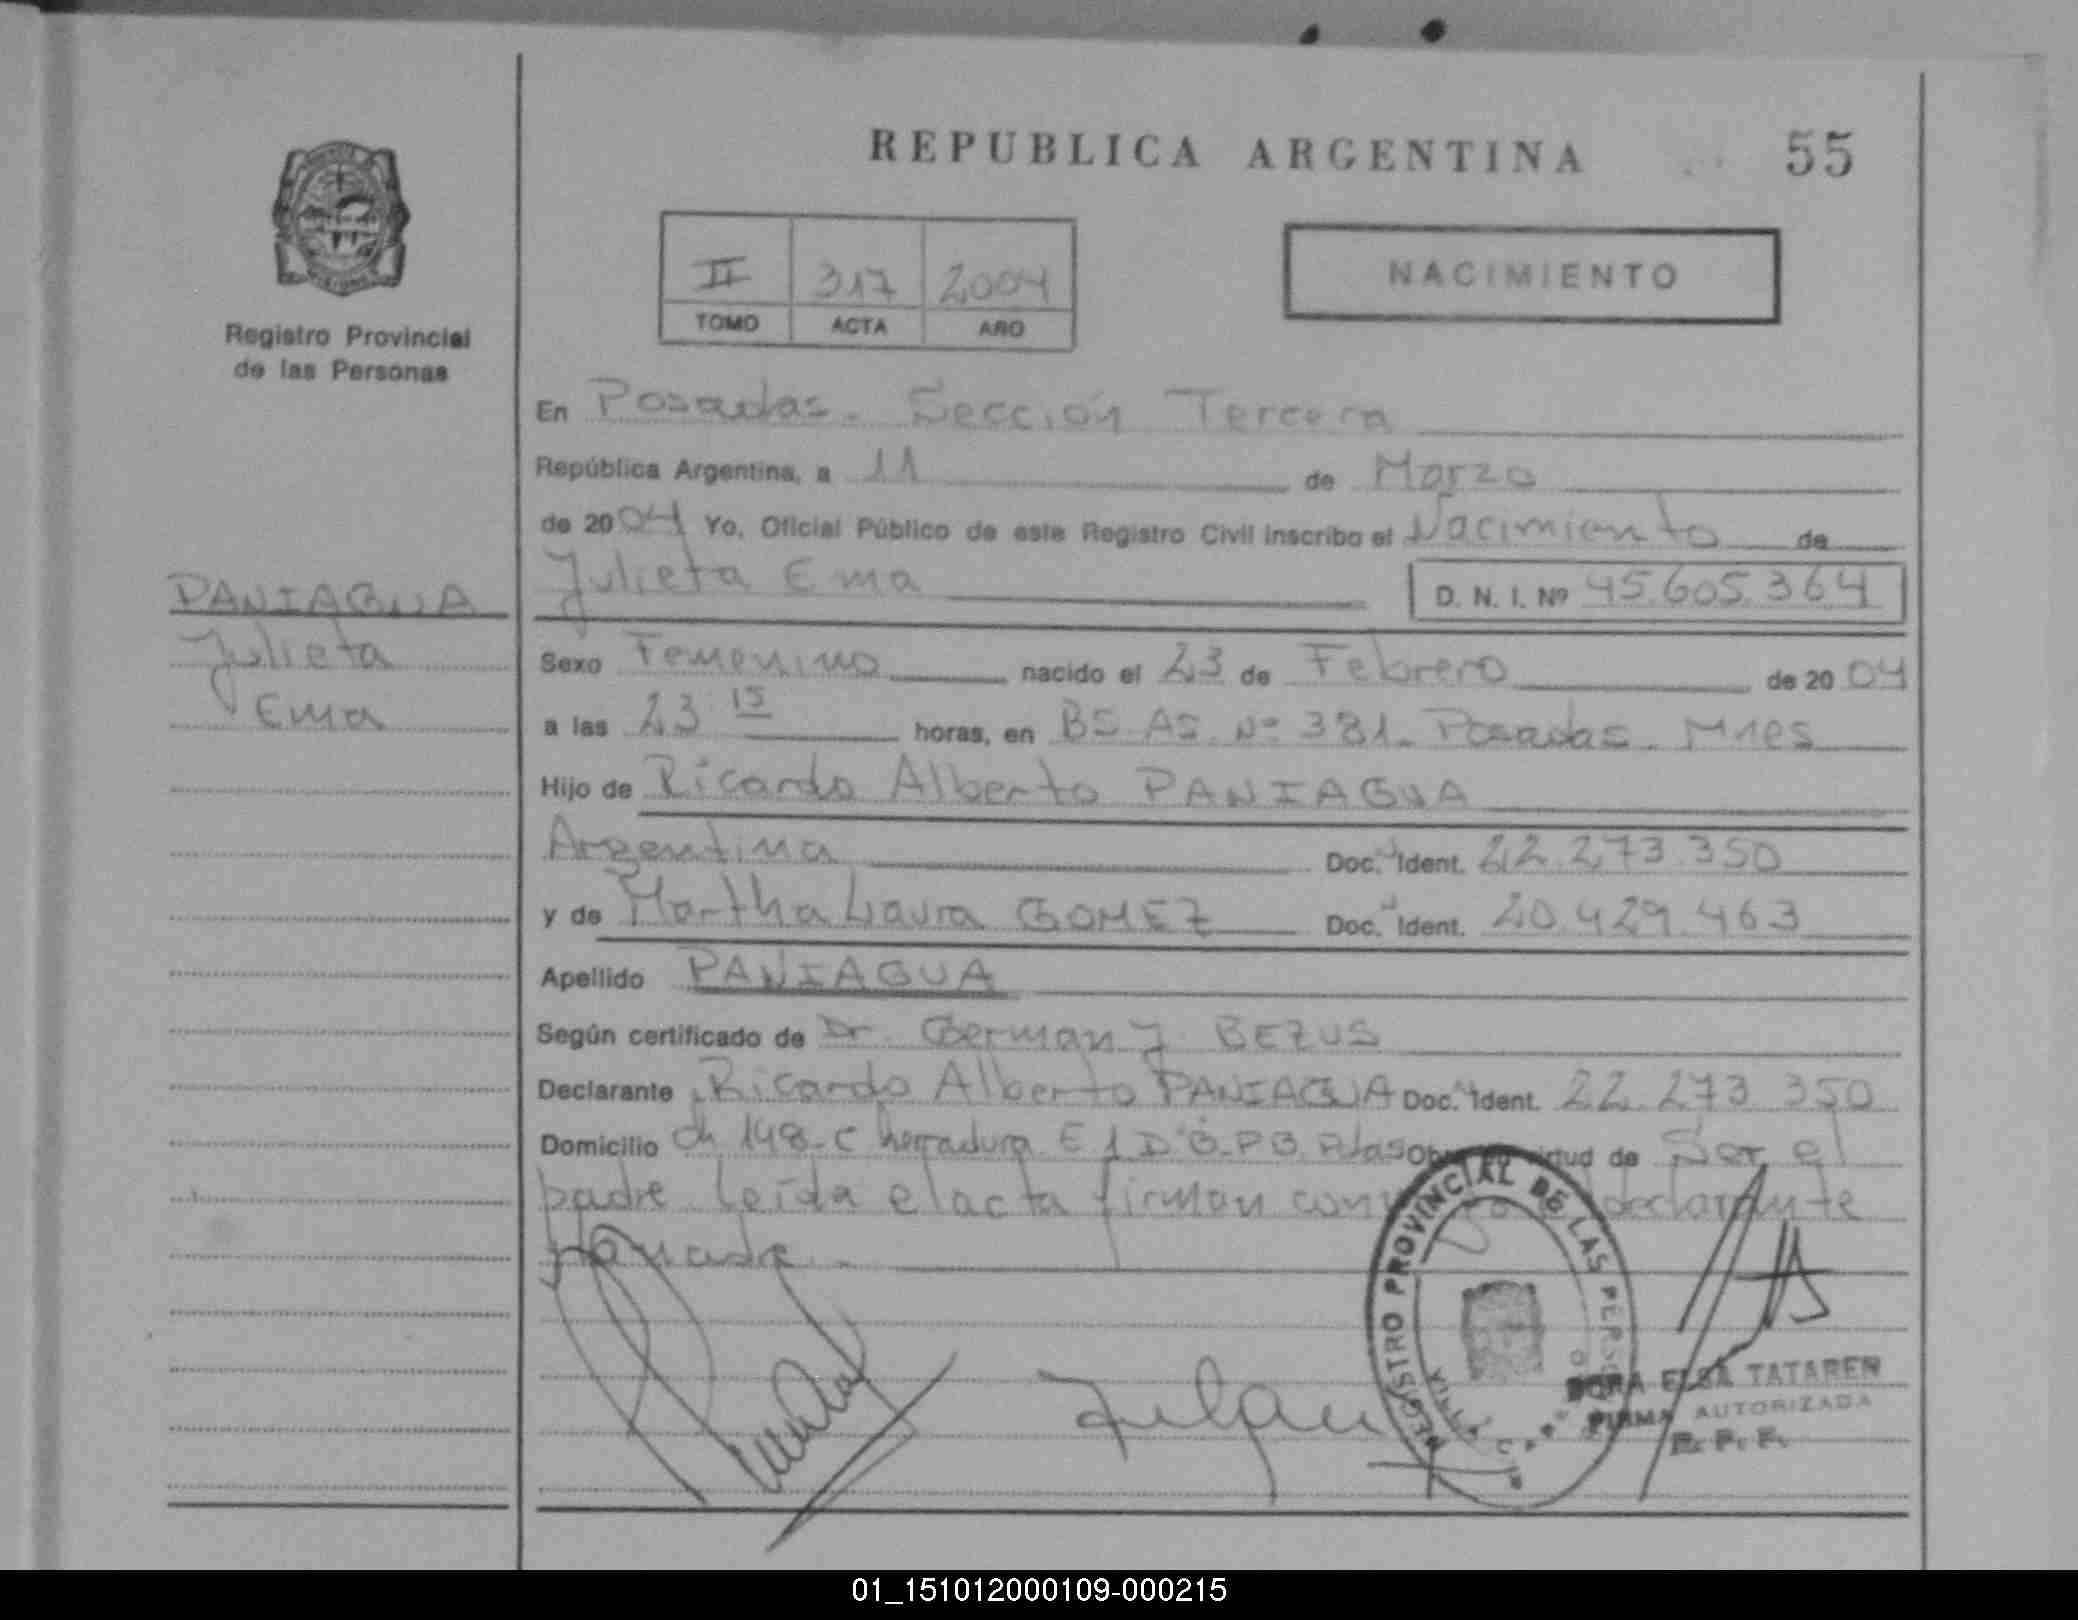 REPUBLICA ARGENTINA 55
Registro Provincial
de las Personas
II 317 2004
TOMO ACTA AÑO
NACIMIENTO
En Posadas. Sección Tercera
República Argentina, a 11 de Marzo
de 2004 Yo, Oficial Público de este Registro Civil inscribo el Nacimiento de
Julieta Ema D. N. I. Nº 45.605.364
PANIAGUA
Julieta
Ema
Sexo Femenino nacido el 23 de Febrero de 2004
a las 23 15 horas, en BS. AS. Nº 381. Posadas. Mnes
Hijo de Ricardo Alberto PANIAGUA
Argentina Doc. Ident. 22.273.350
y de Martha Laura GOMEZ Doc. Ident. 20.429.463
Apellido PANIAGUA
Según certificado de Dr. German J. BEZUS
Declarante Ricardo Alberto PANIAGUA Doc. Ident. 22.273.350
Domicilio ch 148-C herradura E 1 D 8. PB. Pdas Obra en virtud de Ser el
padre. Leída el acta firman conmigo el declarante
REGISTRO PROVINCIAL DE LAS PERSONAS
DORA ELSA TATAREN
FIRMA AUTORIZADA
R. P. P.
01_151012000109-000215